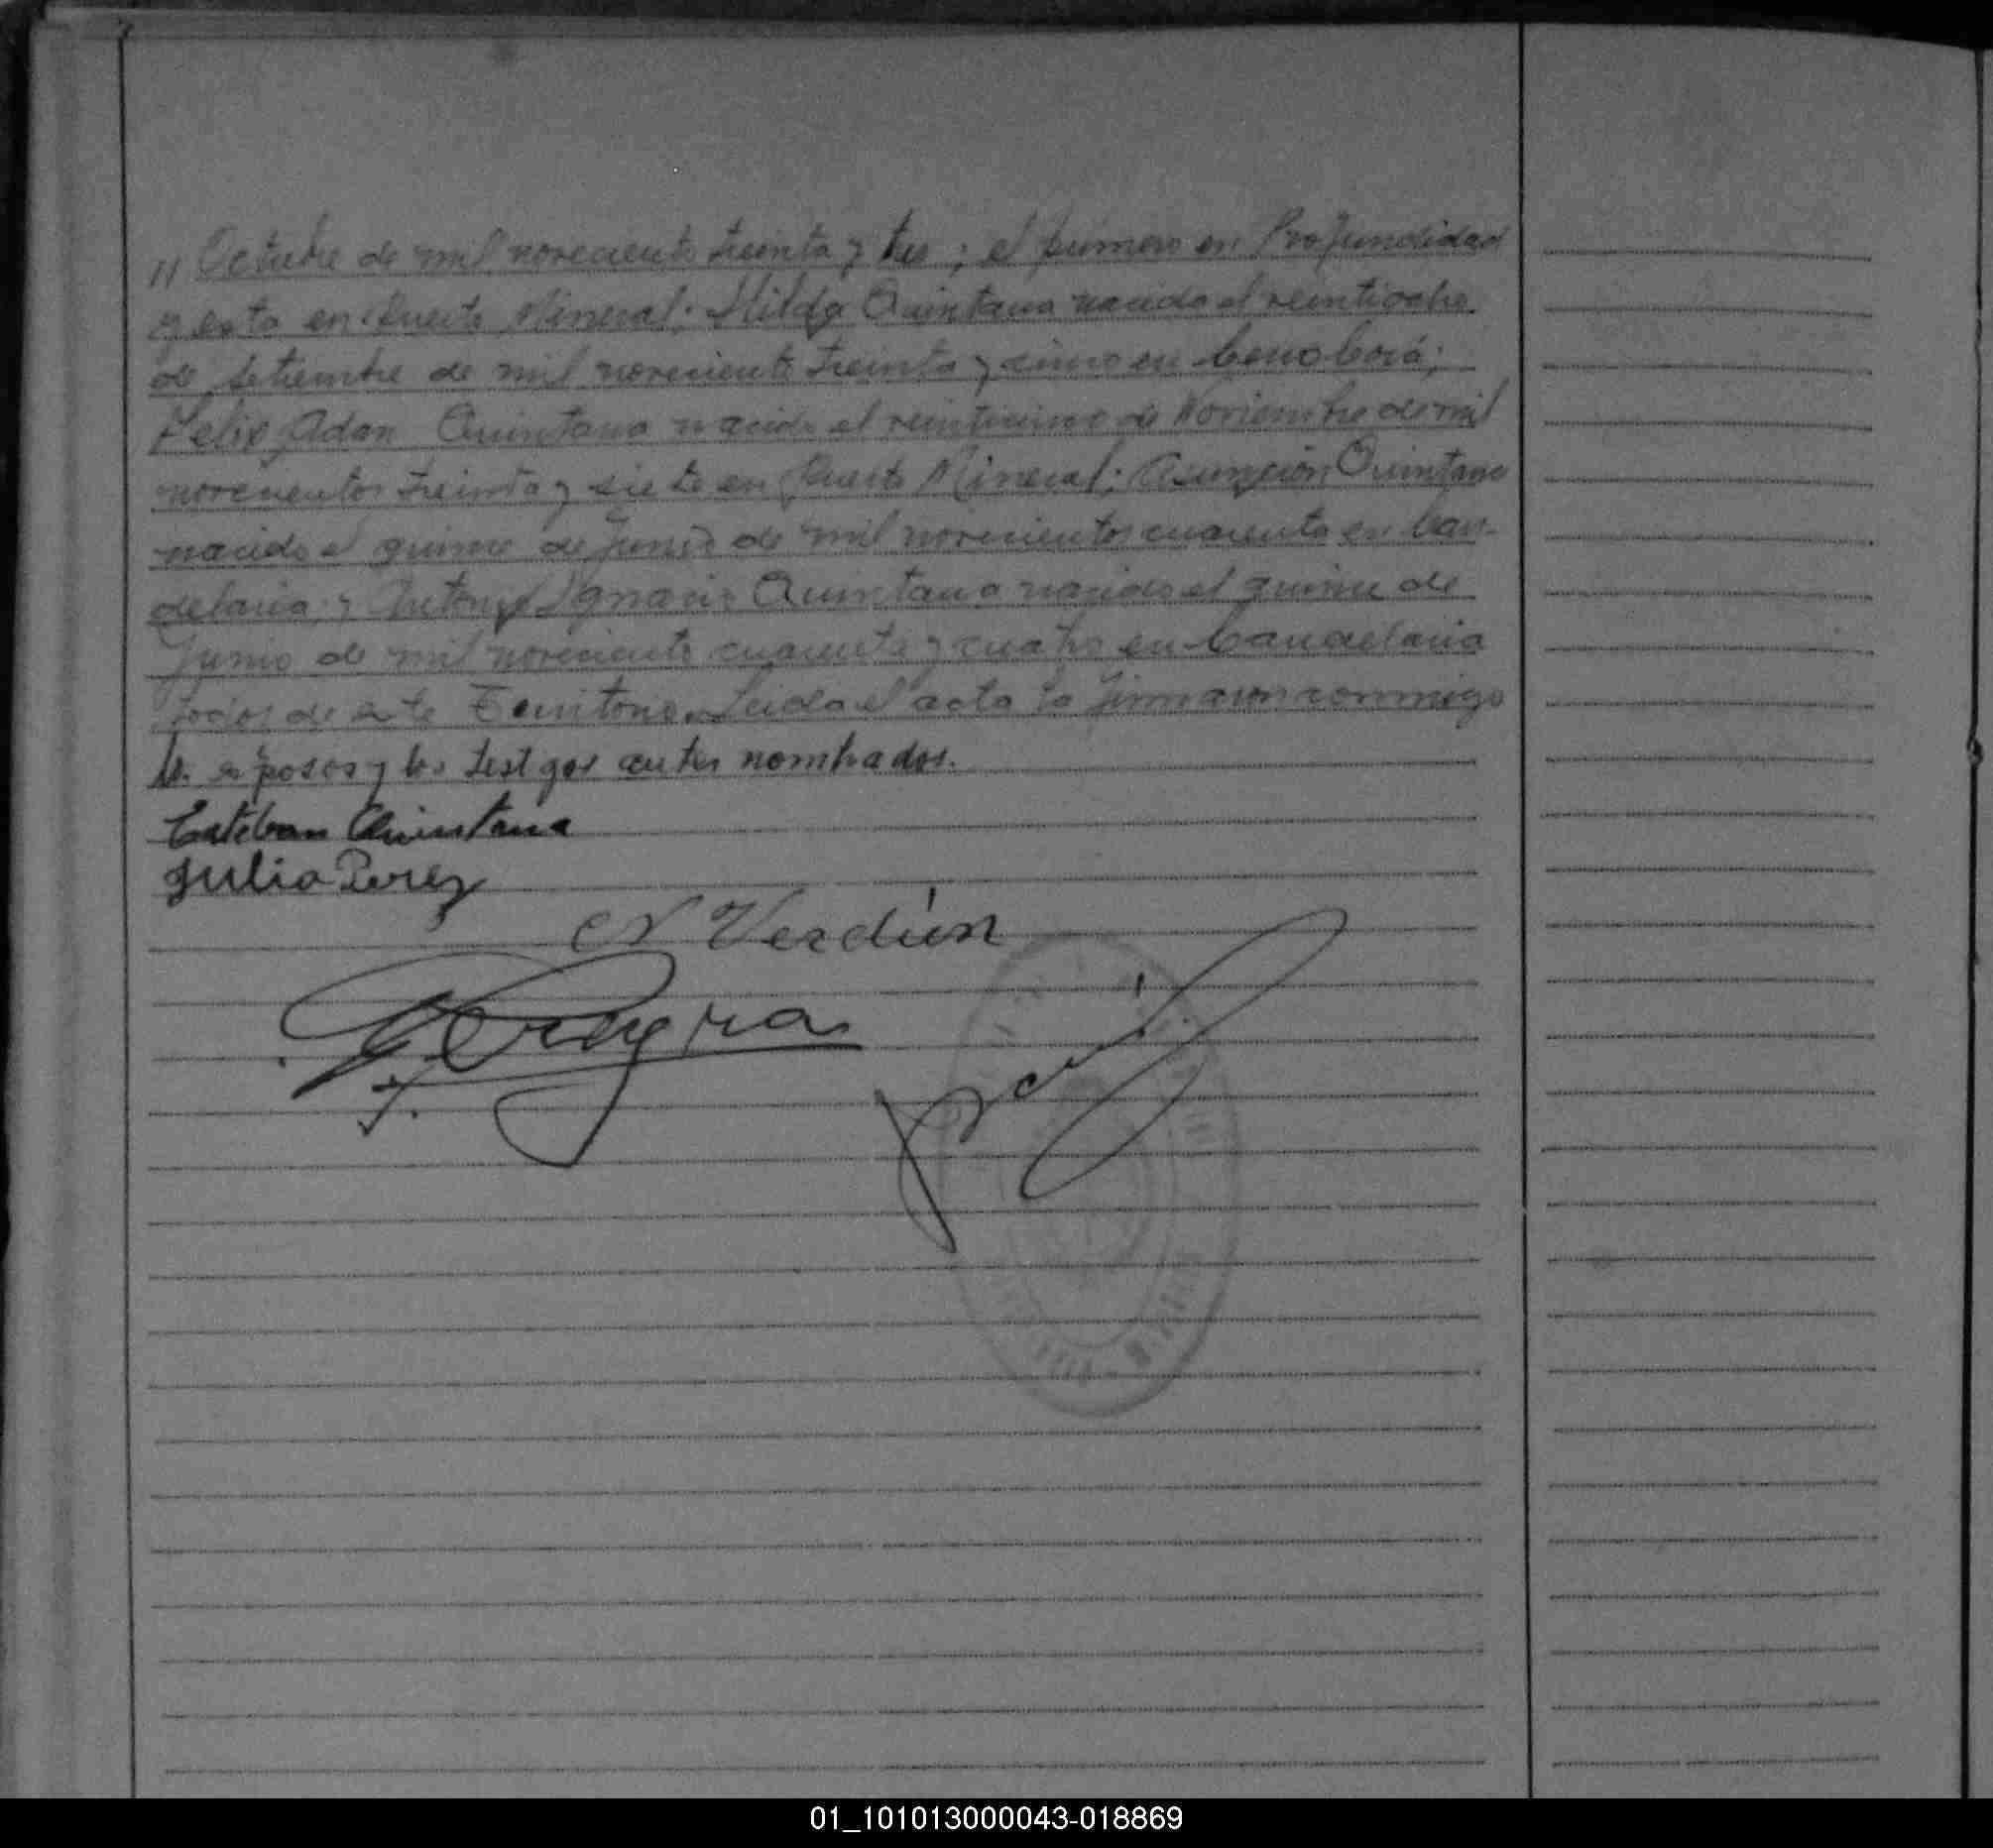 11 Octubre de mil noveciento treinta y tres; el primero en Profundidad
y esta en Puerto Mineral; Hilda Quintana nacida el veintiocho
de Setiembre de mil noveciento treinta y cinco en Cerro Corá;
Felix Adan Quintana nacido el veinticinco de Noviembre de mil
novecientos treinta y siete en Puerto Mineral; Asunción Quintana
nacida el quince de Junio de mil novecientos cuarenta en Can-
delaria; y Antonio Ignacio Quintana nacido el quince de
Junio de mil noveciento cuarenta y cuatro en Candelaria
todos de este Territorio. Leida el acta la firmaron conmigo
los esposos y los testigos antes nombrados.
Esteban Quintana
Julia Perez
N Verdún
01_101013000043-018869